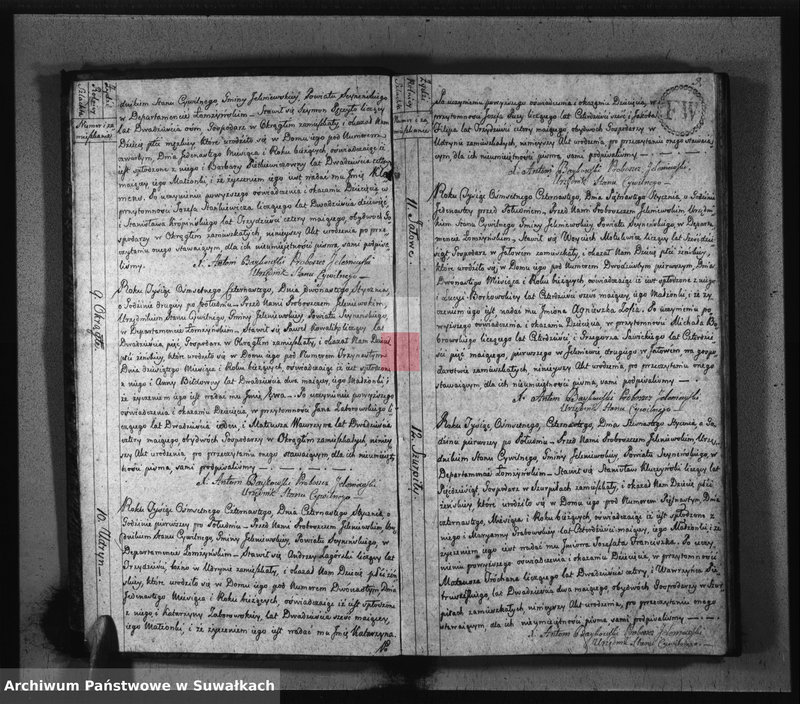 dnikiem Stanu Cywilnego, Gminy Jeleniewskiey, Powiatu Seyneńskiego
w Departamencie Łomżyńskim. Stawił się Szymon liczący
lat Dwadzieścia ośm Gospodarz w Okrągłem zamieszkały, i okazał Nam
Dziecię płci męskiey, które urodziło się w Domu iego pod Numerem
czwartym, Dnia Jedenastego Miesiąca i Roku bieżących, oświadczaiąc iż
iest spłodzone z niego i Barbary lat Dwadzieścia cztery
maiącey iego Małżonki, i że życzeniem iego iest nadać mu Jmię
Po uczynieniu powyższego oświadczenia i okazaniu Dziecięcia w
przytomności Jozefa Stankiewicza liczącego lat Dwadzieścia dziewięć
i Stanisława Kropińskiego lat Trzydzieści cztery maiącego, obydwóch Go
spodarzy w Okrągłem zamieszkałych, ninieyszy Akt urodzenia po prze
czytaniu onego stawaiącym, dla ich nieumieiętności pisma, sami podpisa
liśmy.
X. Antoni Baykowski Proboszcz Jeleniewski
Urzędnik Stanu Cywilnego
9. Okrągłe
Roku Tysiąc Ośmsetnego Czternastego, Dnia Dwonastego Stycznia,
o Godzinie drugiey po południu. Przed Nami Proboszczem Jeleniewskim,
Urzędnikiem Stanu Cywilnego, Gminy Jeleniewskiey, Powiatu Seyneńskiego,
w Departamencie Łomżyńskim, Stawił się Paweł Kowalik liczący lat
Dwadzieścia pięć, Gospodarz w Okrągłem zamieszkały, i okazał Nam Dziecię
płci żeńskiey, które urodziło się w Domu iego pod Numerem Trzynastym
Dnia dziesiątego Miesiąca i Roku bieżących, oświadczaiąc iż iest spłodzone
z niego i Anny lat Dwadzieścia dwa maiącey, iego Małżonki, i
że życzeniem iego iest nadać mu Jmię Ewa. Po uczynieniu powyższego
oświadczenia i okazaniu Dziecięcia, w przytomności Jana Zaborowskiego li
czącego lat Dwadzieścia i Mateusza Wawrzyna lat Dwadzieścia
cztery maiącego obydwóch Gospodarzy w Okrągłem zamieszkałych, niniey
szy Akt urodzenia, po przeczytaniu onego stawaiącym dla ich nieumieię
tności pisma, sami podpisaliśmy
X. Antoni Baykowski Proboszcz Jeleniewski
Urzędnik Stanu Cywilnego
10. Udryn
Roku Tysiąc Ośmsetnego Czternastego, Dnia Czternastego Stycznia o
Godzinie pierwszey po Południu. Przed Nami Proboszczem Jeleniewskim Urzę
dnikiem Stanu Cywilnego, Gminy Jeleniewskiey, Powiatu Seyneńskiego, w
Departamencie Łomżyńskim. Stawił się Andrzey Zagórski liczący lat
Trzydzieści, w Udrynie zamieszkały, i okazał Nam Dziecię płci żeń
skiey, które urodziło się w Domu iego pod Numerem Dwónastym Dnia
Jedenastego Miesiąca i Roku bieżących, oświadczaiąc iż iest spłodzone
z niego i Katarzyny Zaborowskiey, lat Dwadzieścia sześć maiącey,
iego Małżonki, i że życzeniem iego iest nadać mu Jmię Katarzyna.
Po
Po uczynieniu powyższego oświadczenia i okazaniu Dziecięcia, w
przytomności Jozefa lat Czterdzieści sześć i Jakoba
Filipa lat Trzydzieści cztery maiącego, obydwóch Gospodarzy w
Udrynie zamieszkałych, ninieyszy Akt urodzenia, po przeczytaniu onego stawa
iącym dla ich nieumieiętności pisma, sami podpisaliśmy
X. Antoni Baykowski Proboszcz Jeleniewski
Urzędnik Stanu Cywilnego
FW
11. Jatowo.
Roku Tysiąc Ośmsetnego Czternastego, Dnia Stycznia, o Godzinie
Jedenastey przed Południem, Przed Nami Proboszczem Jeleniewskim Urzędni
kiem Stanu Cywilnego Gminy Jeleniewskiey, Powiatu Seyneńskiego, w Departa
mencie Łomżyńskim, Stawił się Woyciech liczący lat
Gospodarz w Jatowem zamieszkały, i okazał Nam Dziecię płci żeńskiey,
które urodziło się w Domu iego pod Numerem Dwudziestym pierwszym, Dnia
Miesiąca i Roku bieżących, oświadczaiąc iż iest spłodzone z niego
i Łucyi Borkowskiey lat Czterdzieści maiącey, iego Małżonki, i że ży
czeniem iego iest nadać mu Jmiona Agnieszka Zofia. Po uczynieniu po
wyższego oświadczenia i okazaniu Dziecięcia, w przytomności Michała
liczącego lat Czterdzieści i Grzegorza Sawickiego lat Czterdzieści
pięć maiącego, pierwszego w Jeleniewie drugiego w Jatowem na gospo
darstwie zamieszkałych, ninieyszy Akt urodzenia po przeczytaniu onego
stawaiącym, dla ich nieumieiętności pisma, sami podpisaliśmy
X. Antoni Baykowski Proboszcz Jeleniewski
Urzędnik Stanu Cywilnego
12. Szurpiły
Roku Tysiąc Ośmsetnego, Czternastego, Dnia Stycznia, o Go
dzinie pierwszey po Południu. Przed Nami Proboszczem Jeleniewskim, Urzę
dnikiem Stanu Cywilnego, Gminy Jeleniewskiey, Powiatu Seyneńskiego, w
Departamencie Łomżyńskim. Stawił się Stanisław Kluczyński liczący lat
Gospodarz w Szurpiłach zamieszkały, i okazał Nam Dziecię płci
żeńskiey, które urodziło się w Domu iego pod Numerem Dnia
czternastego, Miesiąca i Roku bieżących oświadczaiąc iż iest spłodzone z
niego i Maryanny lat Czterdzieści maiącey, iego Małżonki i że
życzeniem iego iest nadać mu Jmiona Jozefata Franciszka. Po uczy
nieniu powyższego oświadczenia i okazaniu Dziecięcia, w przytomności
Mateusza liczącego lat Dwadzieścia cztery i Wawrzyńca
lat Dwadzieścia dwa maiącego obydwóch Gospodarzy w Szur
piłach zamieszkałych, ninieyszy Akt urodzenia, po przeczytaniu onego
stawaiącym, dla ich nieumieiętności pisma, sami podpisaliśmy
X. Antoni Baykowski Proboszcz Jeleniewski
Urzędnik Stanu Cywilnego
Archiwum Państwowe w Suwałkach